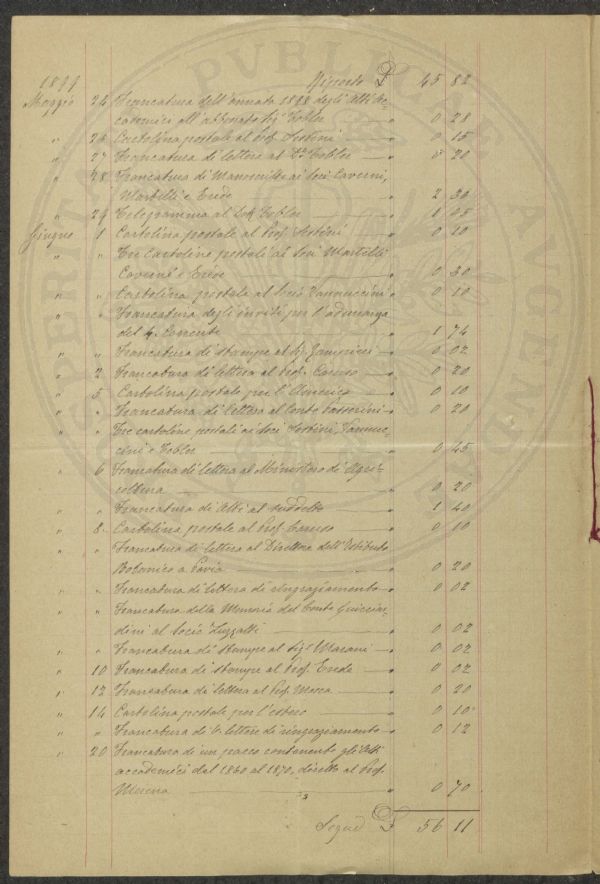 1899 Riporto £ 45 82
Maggio 24 Francatura dell'annata 1898 degli Atti Ac-
cademici all'abbonato Sig. Tobler " 0 28
" 26 Cartolina postale al Prof. Sestini " 0 15
" 27 Francatura di lettera al Dr. Tobler " 0 20
" 28 Francatura di Manoscritti ai Soci Caverni,
Martelli e Erede " 2 30
" 29 Telegramma al Dott. Tobler " 1 05
Giugno 1 Cartolina postale al Prof. Sestini " 0 10
" " Tre cartoline postali ai Soci Martelli
Caverni e Erede " 0 30
" " Cartolina postale al Socio Vannuccini " 0 10
" " Francatura degli inviti per l'adunanza
del 4. Corrente " 1 74
" " Francatura di stampe al Sig. " 0 02
" 2 Francatura di lettera al Prof. Caruso " 0 20
" 5 Cartolina postale per l'America " 0 10
" " Francatura di lettera al Conte Passerini " 0 20
" " Tre cartoline postali ai Soci Sestini, Vannuc-
cini e Tobler " 0 45
" 6 Francatura di lettera al Ministero di Agri-
coltura " 0 20
" " Francatura di Atti al suddetto " 1 40
" 8 Cartolina postale al Prof. Caruso " 0 10
" " Francatura di lettera al Direttore dell'Istituto
Botanico a Pavia " 0 20
" " Francatura di lettera di ringraziamento " 0 02
" " Francatura della Memoria del Conte Guicciar-
dini al Socio Luzzatti " 0 02
" " Francatura di stampe al Sigr. Marani " 0 02
" 10 Francatura di stampe al Prof. Erede " 0 02
" 12 Francatura di lettera al Prof. Mosca " 0 20
" 14 Cartolina postale per l'estero " 0 10
" " Francatura di 6 lettere di ringraziamento " 0 12
" 20 Francatura di un pacco contenente gli Atti
accademici dal 1860 al 1870, diretto al Prof.
" 0 70
Segue £ 56 11